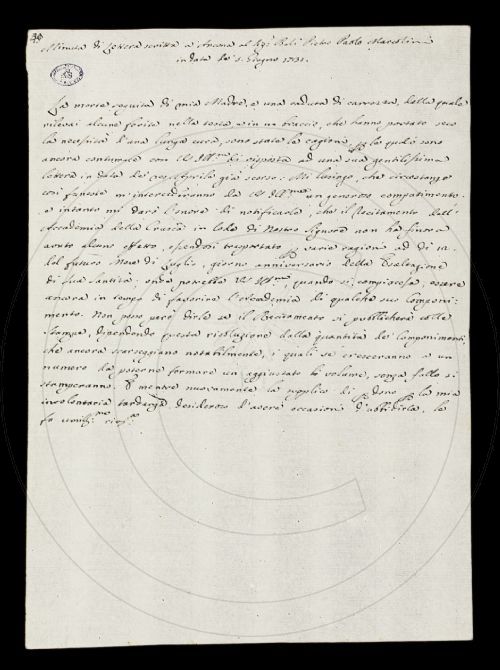 Minuta di Lettera scritta a Ancona al Sig.r Balì Pietro Paolo Marcolini
in data de' 5. Giugno 1731.
La morte seguita di mia Madre, e una caduta di carrozza, dalla quale
rilevai alcune ferite nella testa e in un braccio, che hanno portato seco
la necessità d'una lunga cura, sono state la cagione, p la quale sono
ancora contumace con VS Ill.ma di risposta ad una sua gentilissima
lettera in data de' Aprile già scorso. Mi lusingo, che circostanze
così funeste m'intercederanno da VS Ill.ma un generoso compatimento:
e intanto mi darò l'onore di notificarle, che il Recitamento dell'
Accademia della Crusca in lode di Nostro Signore non ha finora
avuto alcuno effetto, essendosi trasportato p varie ragioni ad di 12.
del futuro Mese di Luglio, giorno anniversario della Esaltazione
di Sua Santità, onde potrebbe VS Ill.ma quando si compiacesse, essere
ancora in tempo di favorire l'Accademia di qualche suo Componi-
mento. Non posso però dirle se il Recitamento si pubblicherà colle
stampe, dipendendo questa risoluzione dalla quantità de' Componimenti,
che ancora scarseggiano notabilmente, i quali se cresceranno a un
numero da poterne formare un aggiustato volume, senza fallo si
stamperanno. E mentre nuovamente la supplico di pdono p la mia
involontaria tardanza, desideroso d'avere occasione d'obbidirla, le
fo